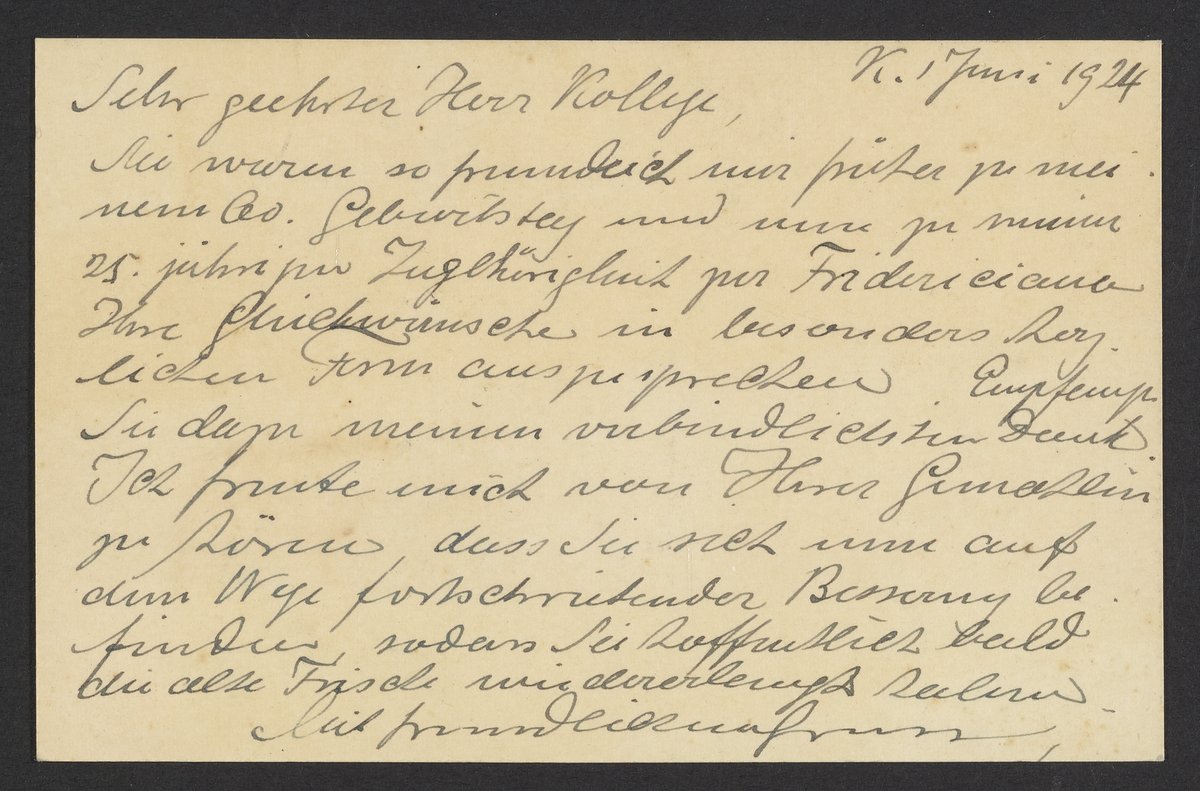 K. 1 Juni 1924
Sehr geehrter Herr Kollege,
Sie waren so freundlich mir früher zu mei-
nem 60. Geburtstag und nun zu meiner
25. jährigen Zugehörigkeit zur Fridericiana
Ihre Glückwünsche in besonders herz-
lichen Form auszusprechen Empfangen
Sie dazu meinen verbindlichsten Dank
Ich freute mich von Ihrer Gemahlin
zu hören, dass Sie sich nun auf
dem Wege fortschreitender Besserung be-
finden, sodass Sie hoffentlich bald
die alte Frische wiedererlangt haben
Mit freundlichem Gruss,